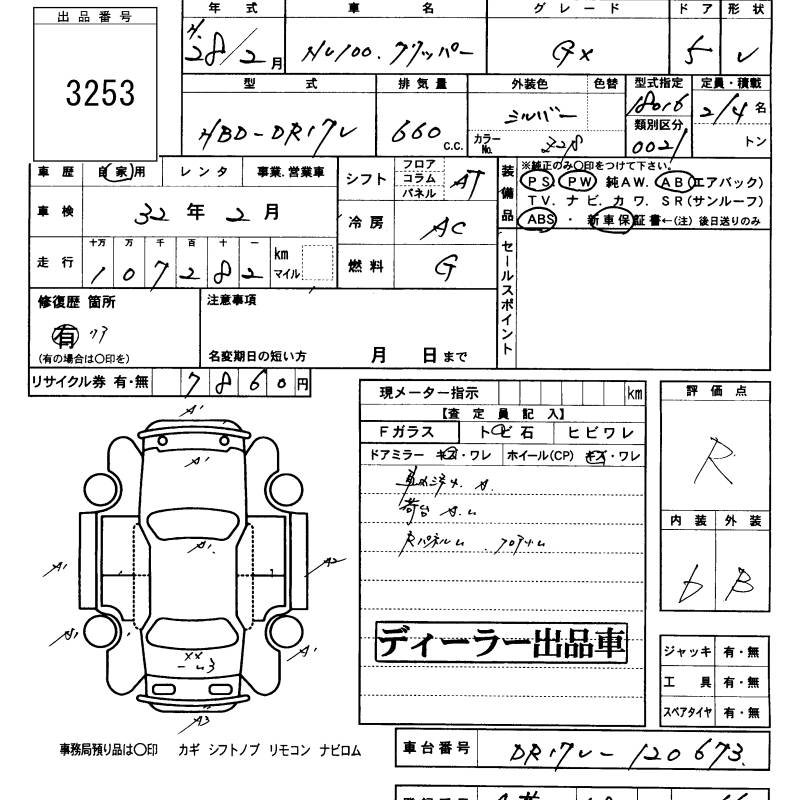 出品番号
3253
年式 車名 グレード ドア 形状
H.28/2月 NV100.クリッパー GX 5 V
型式 排気量 外装色 色替 型式指定 定員・積載
HBD-DR17V 660 c.c. シルバー 18016 2/4名
カラーNo. Z28 類別区分 0021 トン
車歴 自家用 レンタ 事業.営業車
シフト フロア コラム パネル AT
装備品
※純正のみ〇印をつけて下さい。
PS. PW 純AW. AB(エアバック)
TV. ナビ. カワ. SR(サンルーフ)
ABS ・ 新車保証書←(注) 後日送りのみ
車検 32年2月
冷房 AC
走行 十万 万 千 百 十 一 km マイル
1 0 7 2 8 2
燃料 G
セールスポイント
修復歴 箇所
有
(有の場合は〇印を)
注意事項
名変期日の短い方 月 日まで
リサイクル券 有・無 7860円
現メーター指示 km
【査定員記入】
Fガラス トビ石 ヒビワレ
ドアミラー キズ・ワレ ホイール(CP) キズ・ワレ
荷台 A.U
RパネルU フロアイU
ディーラー出品車
評価点
R
内装 外装
D B
ジャッキ 有・無
工具 有・無
スペアタイヤ 有・無
A1
A1
A1
A1 A2
A1 A1
XX
U3
A3
事務局預り品は〇印 カギ シフトノブ リモコン ナビロム
車台番号 DR17V-120673